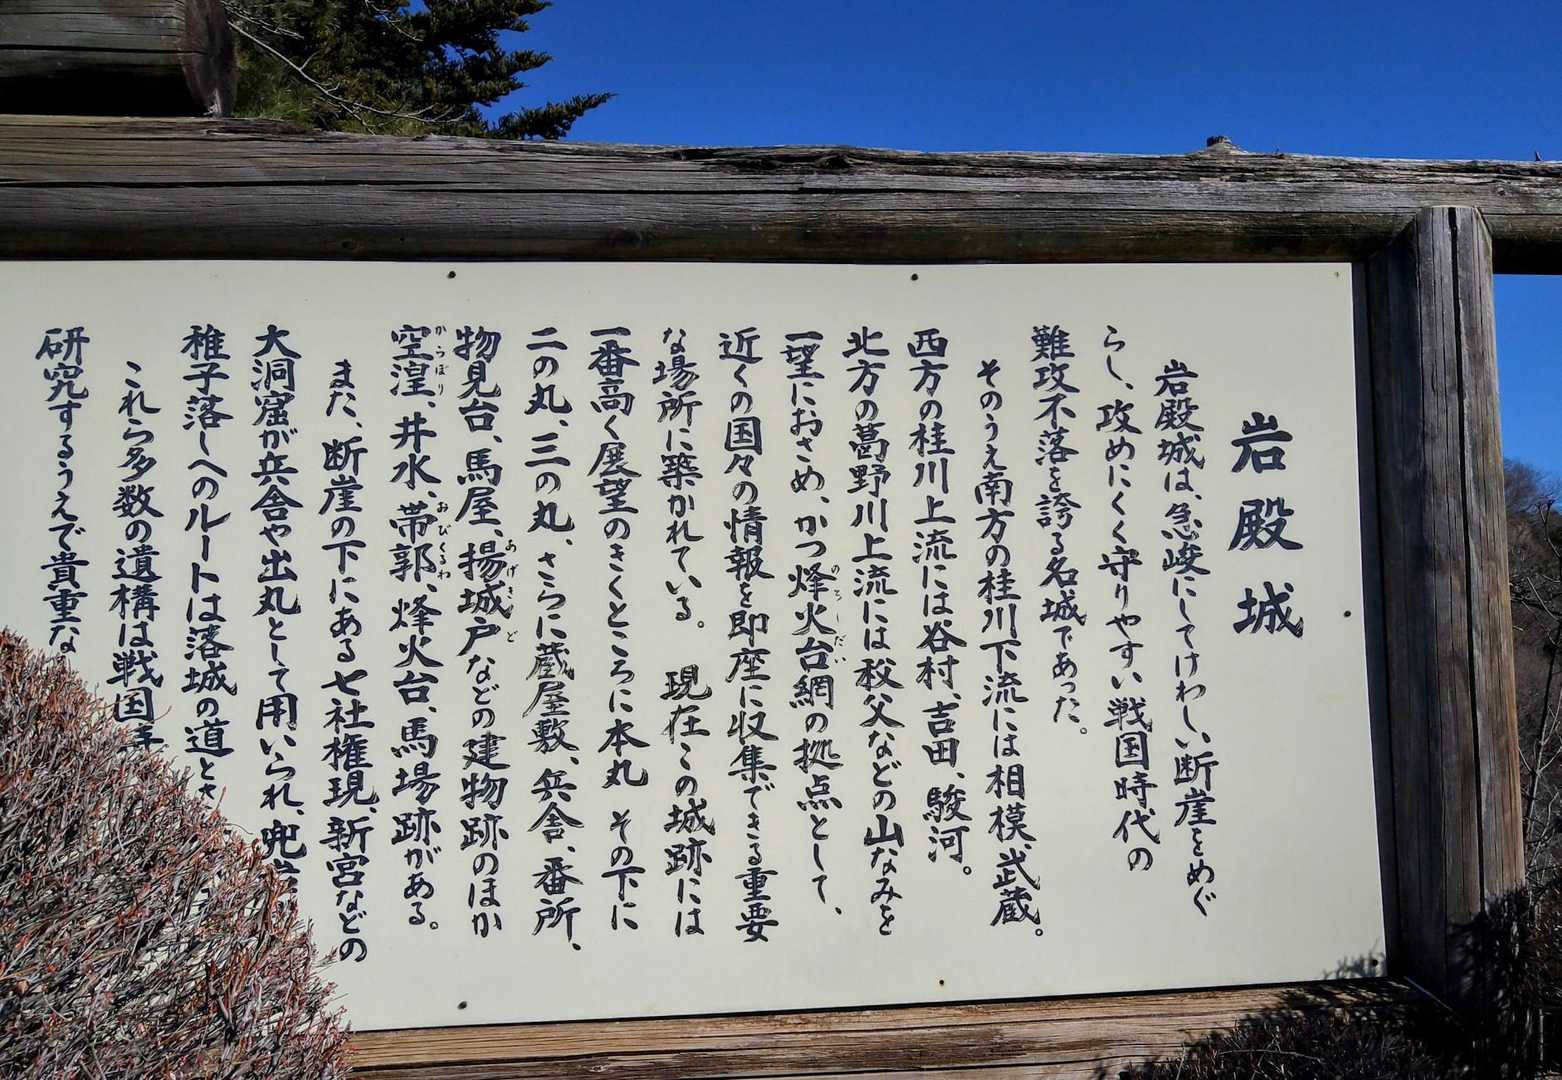 岩殿城
岩殿城は、急峻にしてけわしい断崖をめぐ
らし、攻めにくく守りやすい戦国時代の
難攻不落を誇る名城であった。
そのうえ南方の桂川下流には相模、武蔵。
西方の桂川上流には谷村、吉田、駿河。
北方の葛野川上流には秩父などの山なみを
一望におさめ、かつ烽火台網の拠点として、
のろしだい
近くの国々の情報を即座に収集できる重要
な場所に築かれている。 現在この城跡には
一番高く展望のきくところに本丸 その下に
二の丸、三の丸、さらに蔵屋敷、兵舎、番所、
物見台、馬屋、揚城戸などの建物跡のほか
あげきど
空湟、井水、帯郭、烽火台、馬場跡がある。
からぼり おびくるわ
また、断崖の下にある七社権現、新宮などの
大洞窟が兵舎や出丸として用いられ、兜
稚子落しへのルートは落城の道と
これら多数の遺構は戦国
研究するうえで貴重な